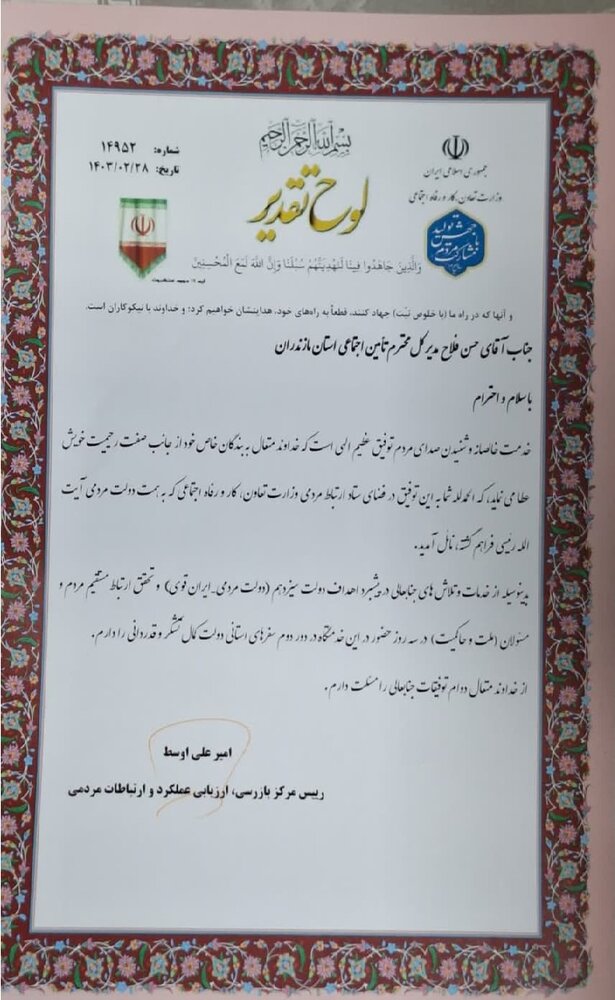 بسم الله الرحمن الرحیم
جمهوری اسلامی ایران
وزارت تعاون، کار و رفاه اجتماعی
جهش تولید
با
مشارکت مردم
شماره: ۱۴۹۵۲
تاریخ: ۱۴۰۳/۰۲/۲۸
لوح تقدیر
وَالَّذِینَ جَاهَدُوا فِینَا لَنَهْدِیَنَّهُمْ سُبُلَنَا وَإِنَّ اللَّهَ لَمَعَ الْمُحْسِنِینَ
و آنها که در راه ما (با خلوص نیّت) جهاد کنند، قطعاً به راه‌های خود، هدایتشان خواهیم کرد؛ و خداوند با نیکوکاران است.
جناب آقای حسن فلاح مدیرکل محترم تأمین اجتماعی استان مازندران
با سلام و احترام
خدمت خالصانه و شنیدن صدای مردم توفیق عظیم الهی است که خداوند متعال به بندگان خاص خود از جانب صفت رحیمیت خویش
عطا می نماید، که الحمدلله شما به این توفیق در فضای ستاد ارتباط مردمی وزارت تعاون، کار و رفاه اجتماعی که به همت دولت مردمی آیت
الله رئیسی فراهم گشته، نائل آمدید.
بدینوسیله از خدمات و تلاش های جنابعالی در پیشبرد اهداف دولت سیزدهم (دولت مردمی-ایران قوی) و تحقق ارتباط مستقیم مردم و
مسئولان (ملت و حاکمیت) در سه روز حضور در این خدمتگاه در دور دوم سفرهای استانی دولت کمال تشکر و قدردانی را دارم.
از خداوند متعال دوام توفیقات جنابعالی را مسئلت دارم.
امیر علی اوسط
رییس مرکز بازرسی، ارزیابی عملکرد و ارتباطات مردمی